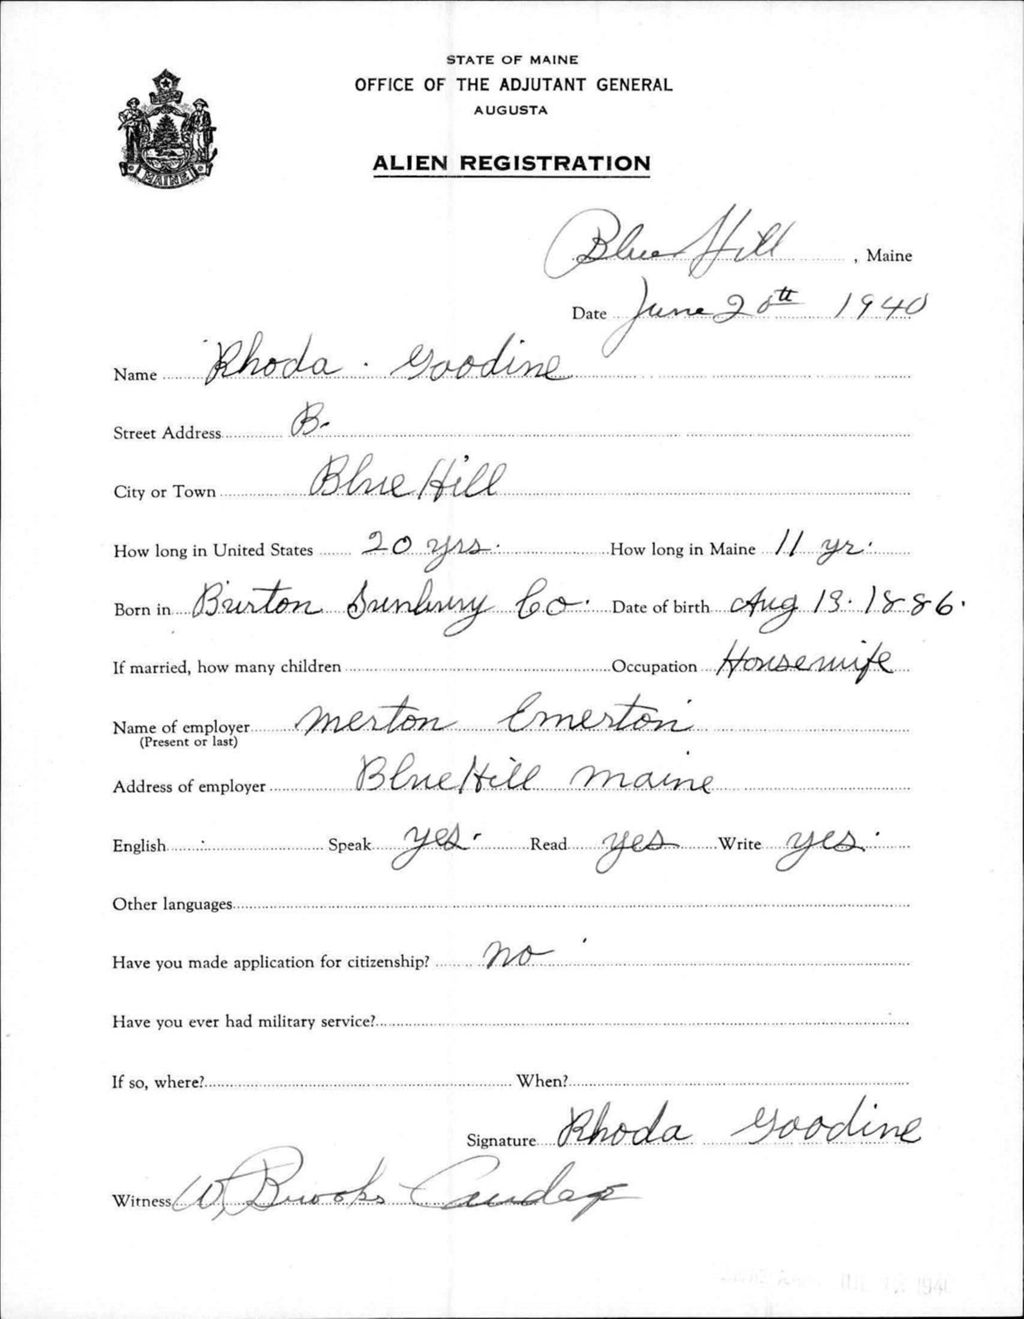 STATE OF MAINE
OFFICE OF THE ADJUTANT GENERAL
AUGUSTA
ALIEN REGISTRATION
MAINE
Blue Hill, Maine
Date June 20th 1940
Name Rhoda Goodine
Street Address B.
City or Town Blue Hill
How long in United States 20 yrs. How long in Maine 11 yr.
Born in Burton Sunbury Co. Date of birth Aug 13. 1886.
If married, how many children Occupation Housewife
Name of employer Merton Emerton
(Present or last)
Address of employer Blue Hill Maine
English Speak yes. Read yes Write yes.
Other languages
Have you made application for citizenship? no
Have you ever had military service?
If so, where? When?
Signature Rhoda Goodine
Witness W. Brooks Candage